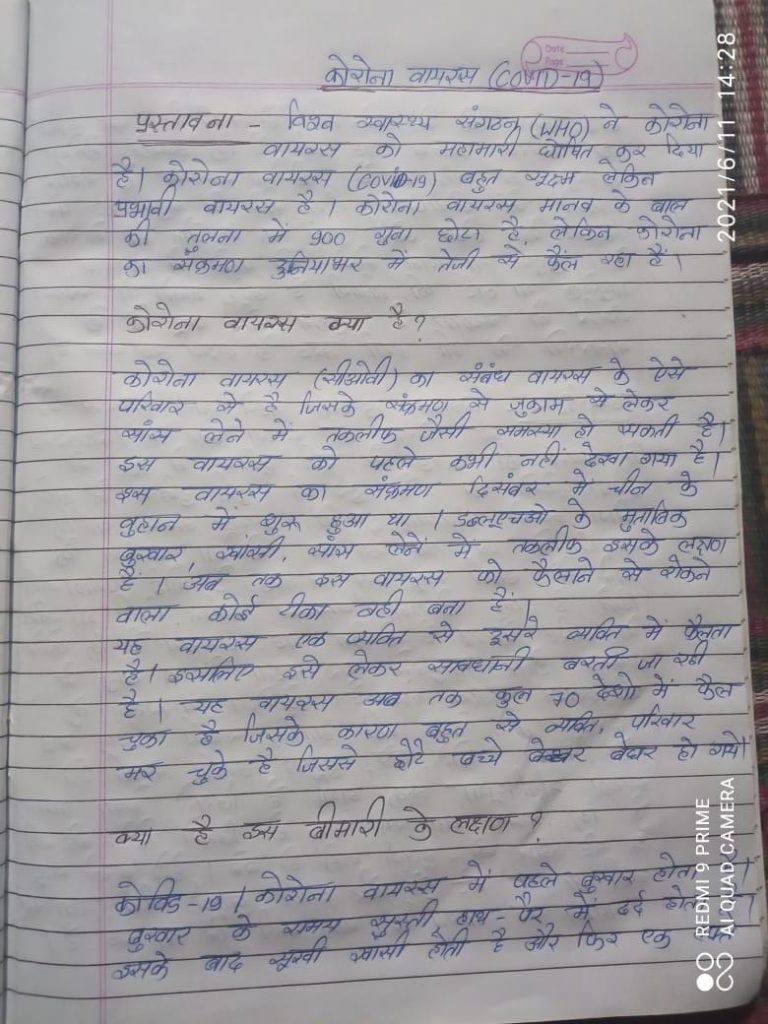 Date
Page
कोरोना वायरस (COVID-19)
प्रस्तावना - विश्व स्वास्थ्य संगठन (WHO) ने कोरोना
वायरस को महामारी घोषित कर दिया
है। कोरोना वायरस (COVID-19) बहुत सूक्ष्म लेकिन
प्रभावी वायरस है। कोरोना वायरस मानव के बाल
की तुलना में 900 गुना छोटा है, लेकिन कोरोना
का संक्रमण दुनियाभर में तेजी से फैल रहा हैं।
कोरोना वायरस क्या है?
कोरोना वायरस (सीओवी) का संबंध वायरस के ऐसे
परिवार से है जिसके संक्रमण से जुकाम से लेकर
सांस लेने में तकलीफ जैसी समस्या हो सकती है।
इस वायरस को पहले कभी नहीं देखा गया है।
इस वायरस का संक्रमण दिसंबर में चीन के
वुहान में शुरू हुआ था। डब्लूएचओ के मुताबिक
बुखार, खांसी, सांस लेनें में तकलीफ इसके लक्षण
हैं। अब तक इस वायरस को फैलाने से रोकने
वाला कोई टीका नही बना हैं।
यह वायरस एक व्यक्ति से दूसरे व्यक्ति में फैलता
है। इसलिए इसे लेकर सावधानी बरती जा रही
है। यह वायरस अब तक कुल 70 देशो में फैल
चुका है जिसके कारण बहुत से व्यक्ति, परिवार
मर चुके है जिससे छोटे बच्चे बेघर हो गये।
क्या है इस बीमारी के लक्षण?
कोविड-19 / कोरोना वायरस में पहले बुखार होता है।
बुखार के समय सुस्ती हाथ-पैर में दर्द होता
इसके बाद सूखी खांसी होती है और फिर एक
2021/6/11 14:28
REDMI 9 PRIME
AI QUAD CAMERA